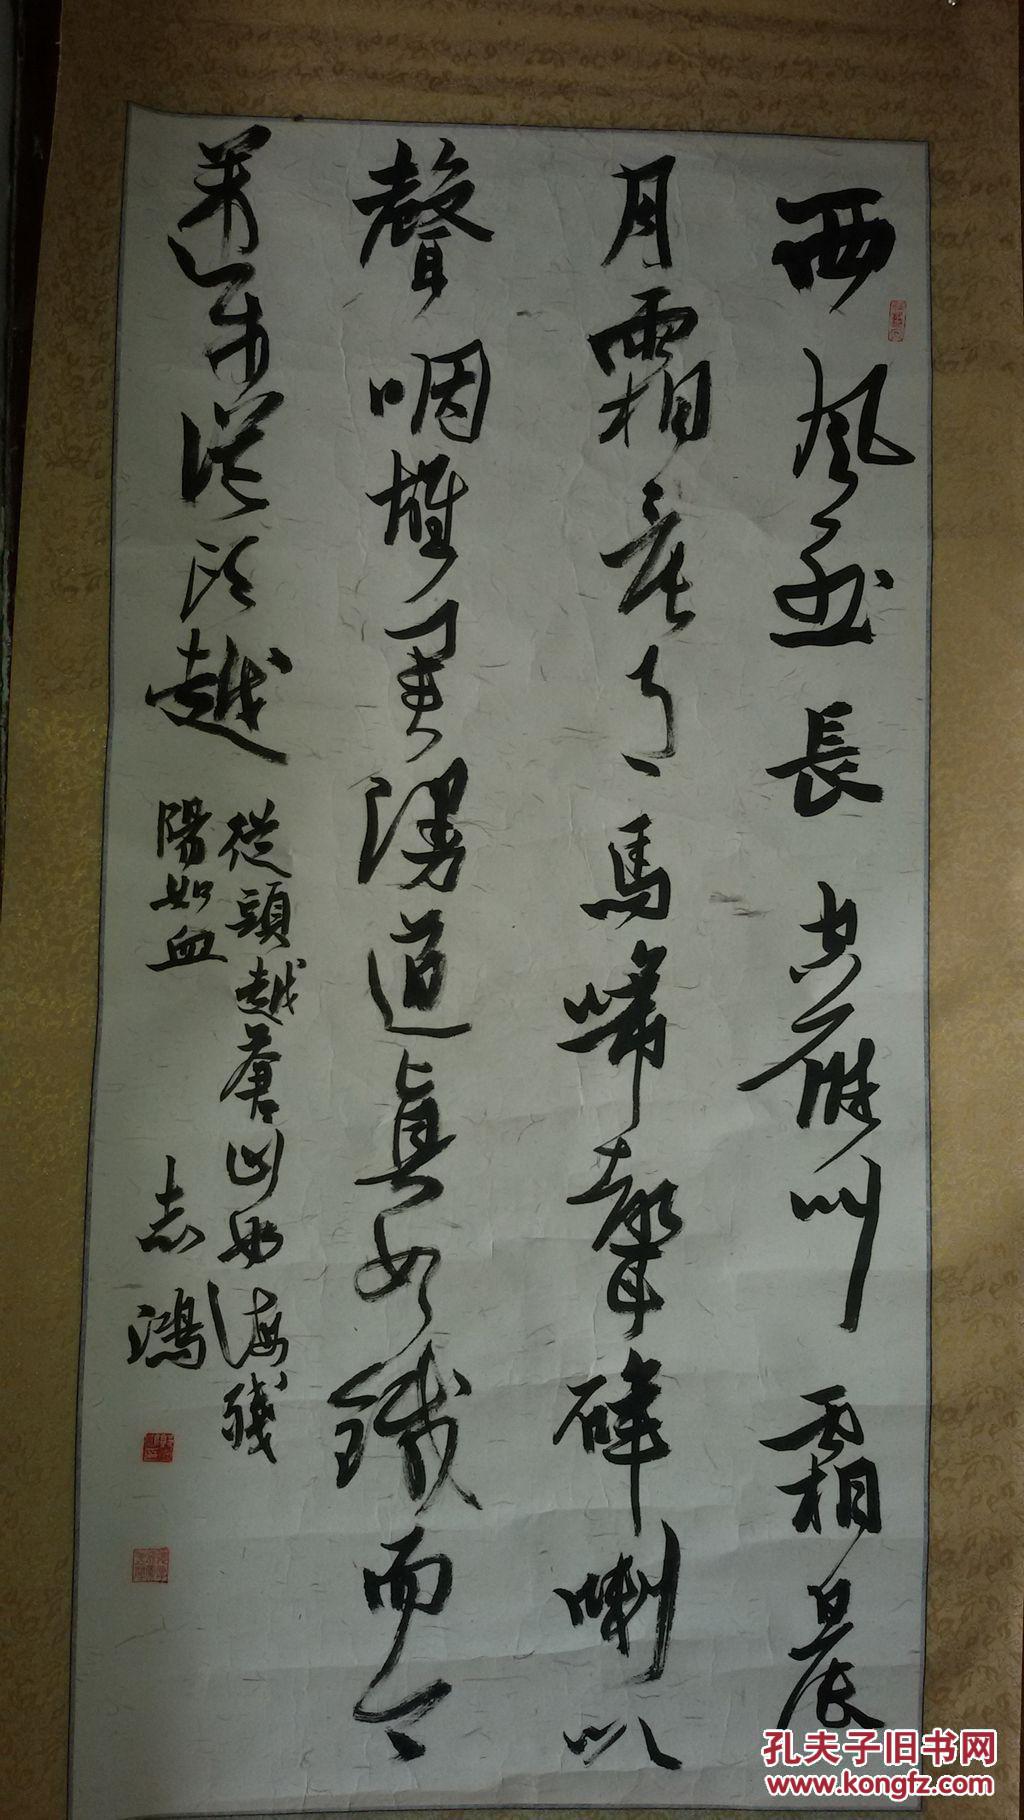 西風烈長空雁叫霜晨
月霜晨月馬蹄聲碎喇叭
聲咽雄関漫道真如鐵而今
邁步從头越
從頭越蒼山如海殘
陽如血
志鴻
孔夫子旧书网
www.kongfz.com